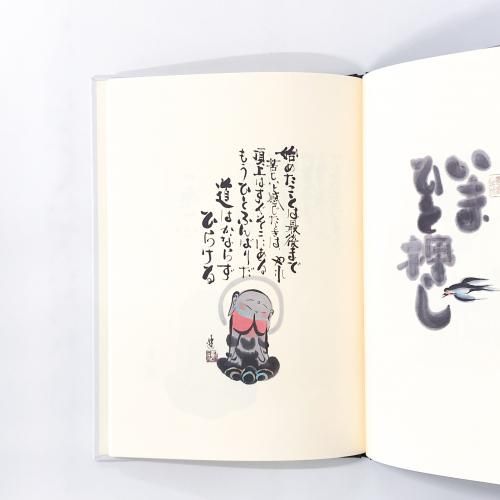 いま
ひと押し
始めたことは最後まで
やれ
苦しいと感じたときは
頂上はすぐそこにある
もうひとふんばりだ
道はかならず
ひらける